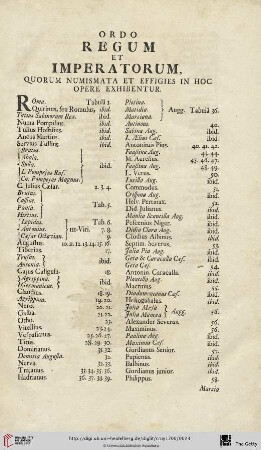 ORDO
REGUM
ET
IMPERATORUM,
QUORUM NUMISMATA ET EFFIGIES IN HOC
OPERE EXHIBENTUR.
Roma. Tabulâ 1.
Quirinus, seu Romulus, ibid.
Tatius Sabinorum Rex. ibid.
Numa Pompilius. ibid.
Tullus Hostilius. ibid.
Ancus Martius. ibid.
Servius Tullius. ibid.
Brutus.
Ahala. ibid.
Sulla.
L. Pompeius Ruf.
Cn. Pompeius Magnus.
C. Julius Cæsar. 2. 3. 4.
Brutus.
Cassius.
Tab. 5.
Hirtius.
Lepidus. Tab. 6.
Antonius. III-Viri. 7. 8.
Cæsar Octavianus. 9.
Augustus. 10. 11. 12. 13. 14. 15. 16.
Tiberius. 17.
Drusus. ibid.
Antonia.
Cajus Caligula. 18.
Agrippina. ibid.
Germanicus.
Claudius. 18. 19.
Agrippina. 19. 20.
Nero. 20. 21.
Galba. 21. 22.
Otho. 23.
Vitellius. 23. 24.
Vespasianus. 25. 26. 27.
Titus. 28. 29. 30.
Domitianus. 31. 32.
Domitia Augusta. 32.
Nerva. 32. 33.
Trajanus. 33. 34. 35. 36.
Hadrianus. 36. 37. 38. 39.
Plotina.
Matidia. Augg. Tabulâ 36.
Marciana.
Antinous. 40.
Sabina Aug. ibid.
L. Ælius Cæs. ibid.
Antoninus Pius. 40. 41. 42.
Faustina Aug. 43. 44.
M. Aurelius. 45. 46. 47.
Faustina Aug. 48. 49.
L. Verus. 50.
Lucilla Aug. ibid.
Commodus. 51.
Crispina Aug. ibid.
Helv. Pertinax. 52.
Did Julianus. ibid.
Manlia Scantilla Aug. ibid.
Pescennius Niger. ibid.
Didia Clara Aug. ibid.
Clodius Albinus. ibid.
Septim. Severus. 53.
Julia Pia Aug. ibid.
Geta & Caracalla Cæs. ibid.
Geta Cæs. 54.
Antonin. Caracalla. ibid.
Plautilla Aug. ibid.
Macrinus. 55.
Diadumenianus Cæs. ibid.
Heliogabalus. ibid.
Julia Mæsa Augg. 56.
Julia Mamæa
Alexander Severus. 56.
Maximinus. 56.
Paulina Aug. ibid.
Maximus Cæs. ibid.
Gordianus Senior. 57.
Pupienus. ibid.
Balbinus. ibid.
Gordianus junior. ibid.
Philippus. 58.
Marcia
http://digi.ub.uni-heidelberg.de/diglit/croy1700/0024
© Universitätsbibliothek Heidelberg
The Getty